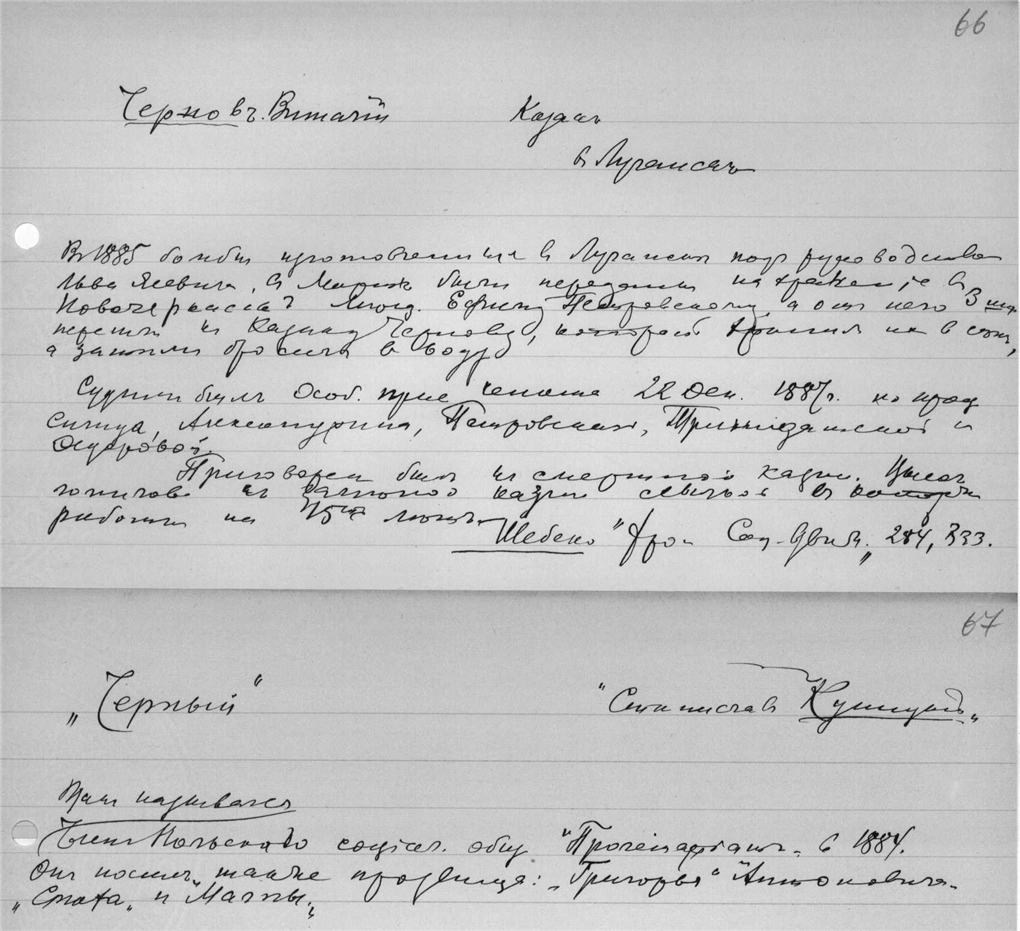 66
Черновъ. Виталій Казакъ
в Луганскѣ
В 1885 бомбы изготовленныя в Луганскѣ под руководством
Льва Ясевича, в Мартѣ были переданы на хранение в
Новочеркасскѣ Ефиму Петровскому, а от него 3 шт.
перешли к казаку Чернову, который хранил их в
а затем бросил в воду
Судим был Особ. прис сената 22 Дек. 1887г. по проц
Сигида, Александрина, Петровская, Тринидатской и
Федоровой.
Приговорен был к смертной казни.
казни в
работы на 15 лет.
Шебеко "Хро Соц-Движ." 284, 333.
67
„Черный“ "Станислав Куницкій„
Так назывался
Член Польскаго социал. общ "Пролетариат„ в 1884.
Он носил также прозвища: „Григорья" "Антоновича„
„ и